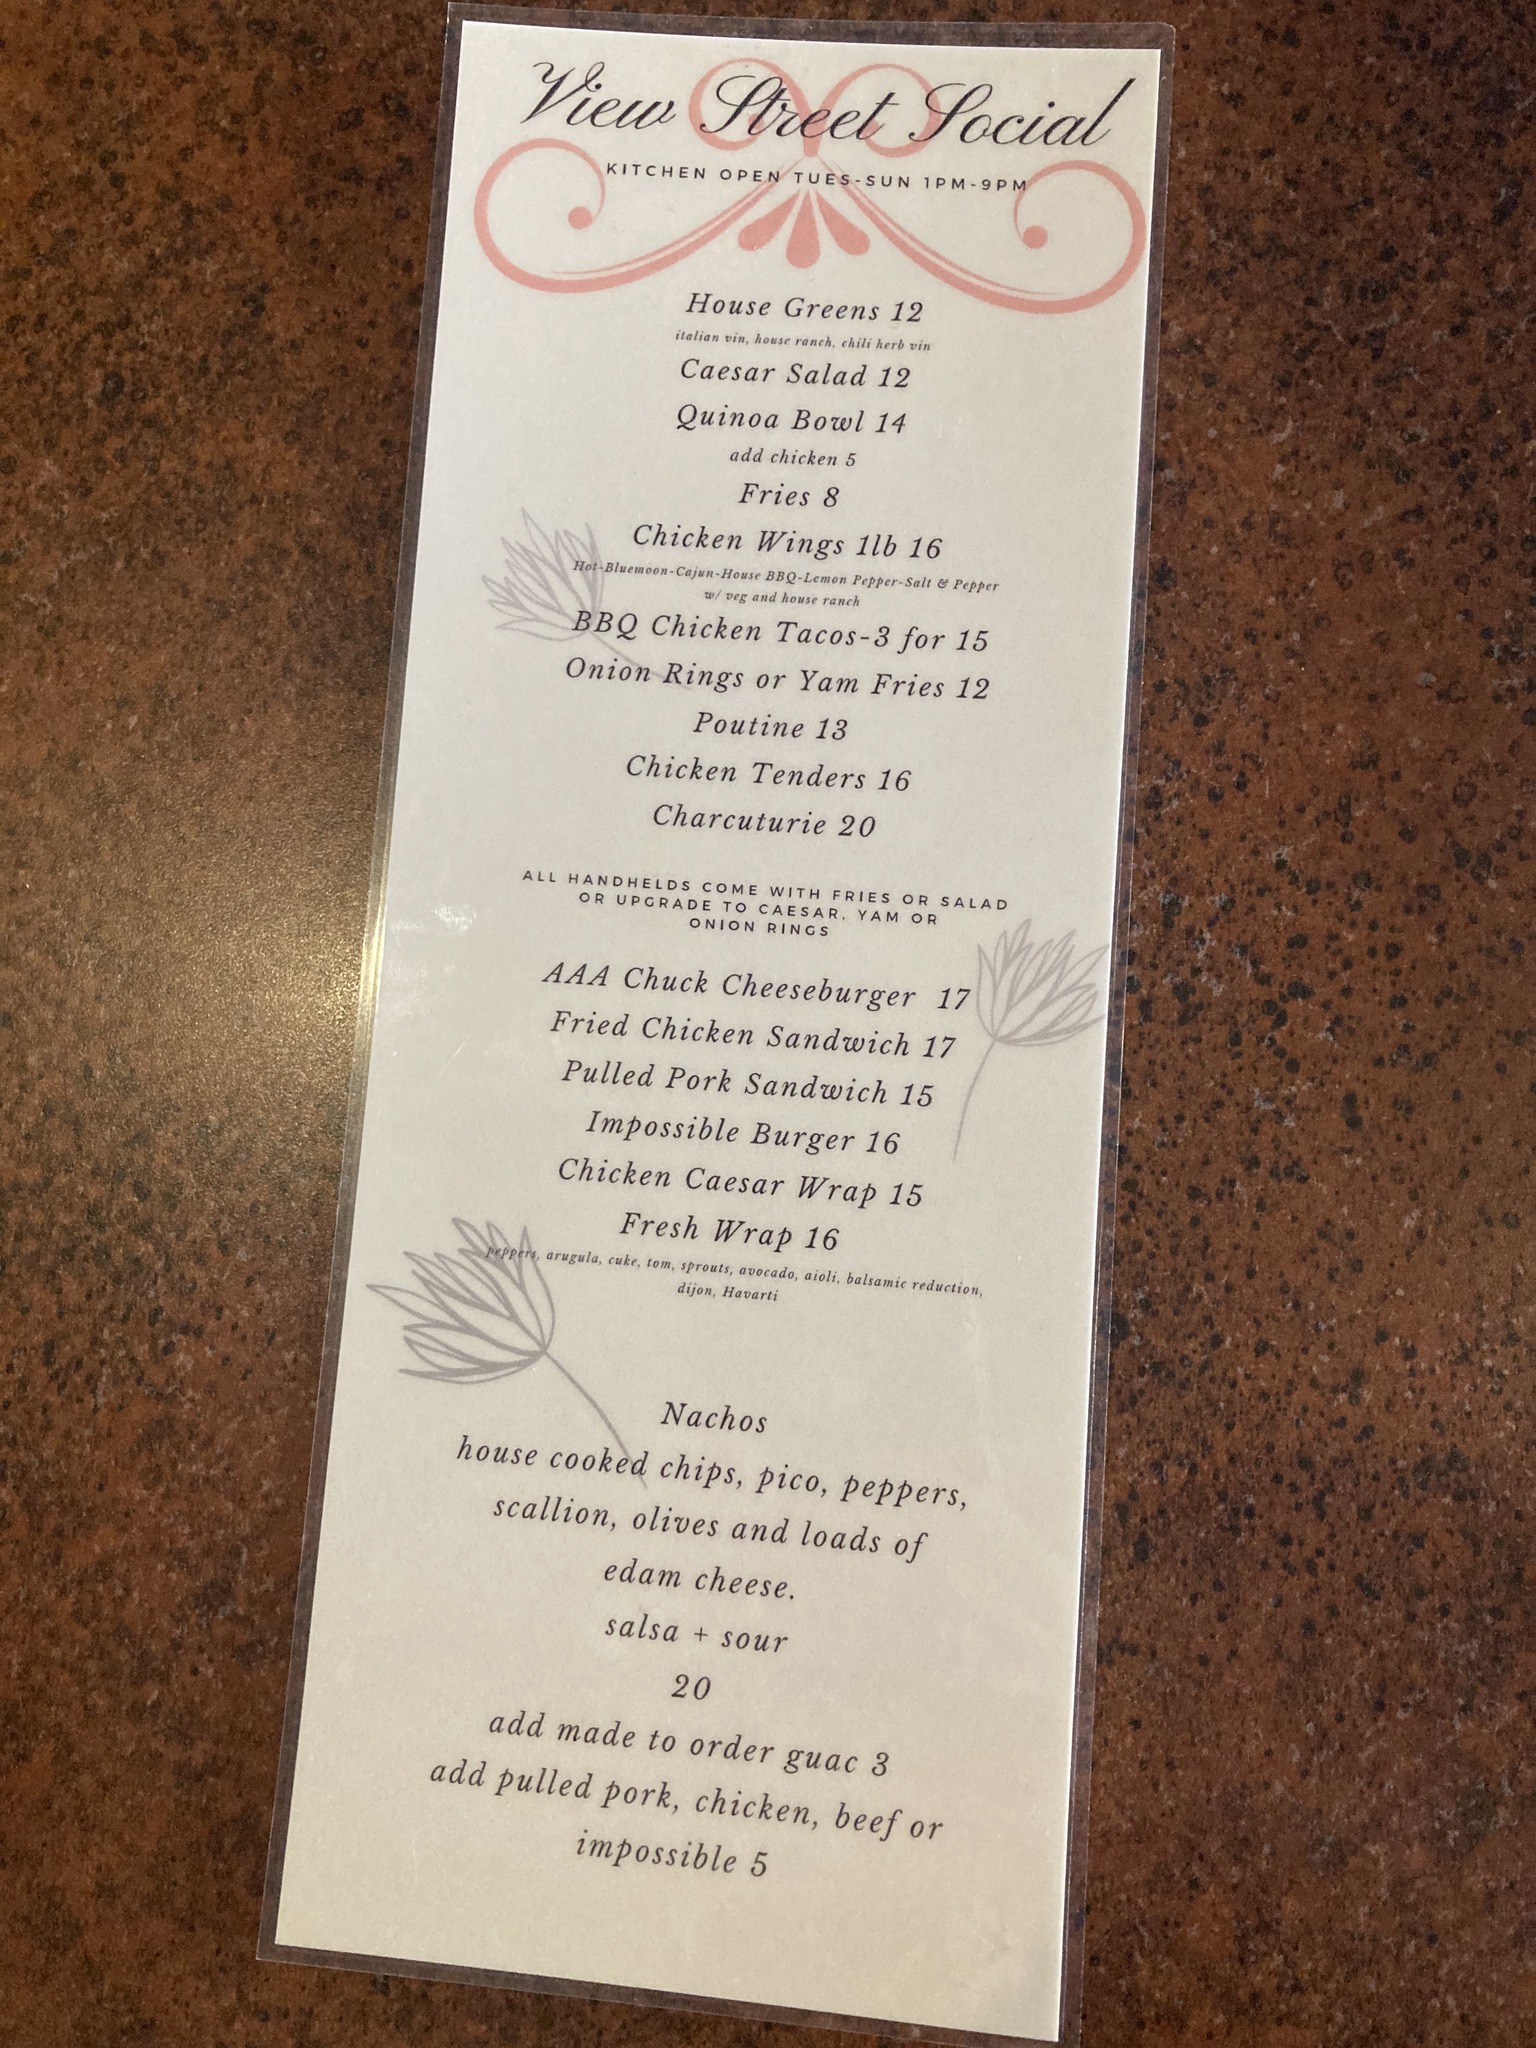 View Street Social
KITCHEN OPEN TUES-SUN 1PM-9PM
House Greens 12
italian vin, house ranch, chili herb vin
Caesar Salad 12
Quinoa Bowl 14
add chicken 5
Fries 8
Chicken Wings 1lb 16
Hot-Bluemoon-Cajun-House BBQ-Lemon Pepper-Salt & Pepper
w/ veg and house ranch
BBQ Chicken Tacos-3 for 15
Onion Rings or Yam Fries 12
Poutine 13
Chicken Tenders 16
Charcuturie 20
ALL HANDHELDS COME WITH FRIES OR SALAD
OR UPGRADE TO CAESAR, YAM OR
ONION RINGS
AAA Chuck Cheeseburger 17
Fried Chicken Sandwich 17
Pulled Pork Sandwich 15
Impossible Burger 16
Chicken Caesar Wrap 15
Fresh Wrap 16
peppers, arugula, cuke, tom, sprouts, avocado, aioli, balsamic reduction,
dijon, Havarti
Nachos
house cooked chips, pico, peppers,
scallion, olives and loads of
edam cheese.
salsa + sour
20
add made to order guac 3
add pulled pork, chicken, beef or
impossible 5